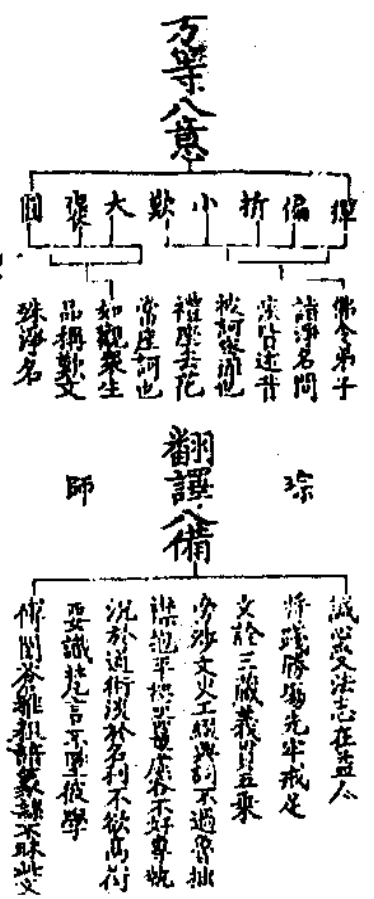 方等八意
彈 偏 折 小 歎 大 褒 圓
佛令弟子
詣淨名問
疾皆述昔
被訶
如觀眾生
品稱歎文
殊淨名
翻譯八備
琮
師
誠心愛法志在益人
將踐勝場先牢戒足
文詮三藏義貫五乘
旁涉文史工綴典詞不過魯拙
襟抱平恕器量虛容不好專執
沈於道術淡於名利不欲高衒
要識梵言不墜彼學
傳閱蒼雅粗諳篆隸不昧此文